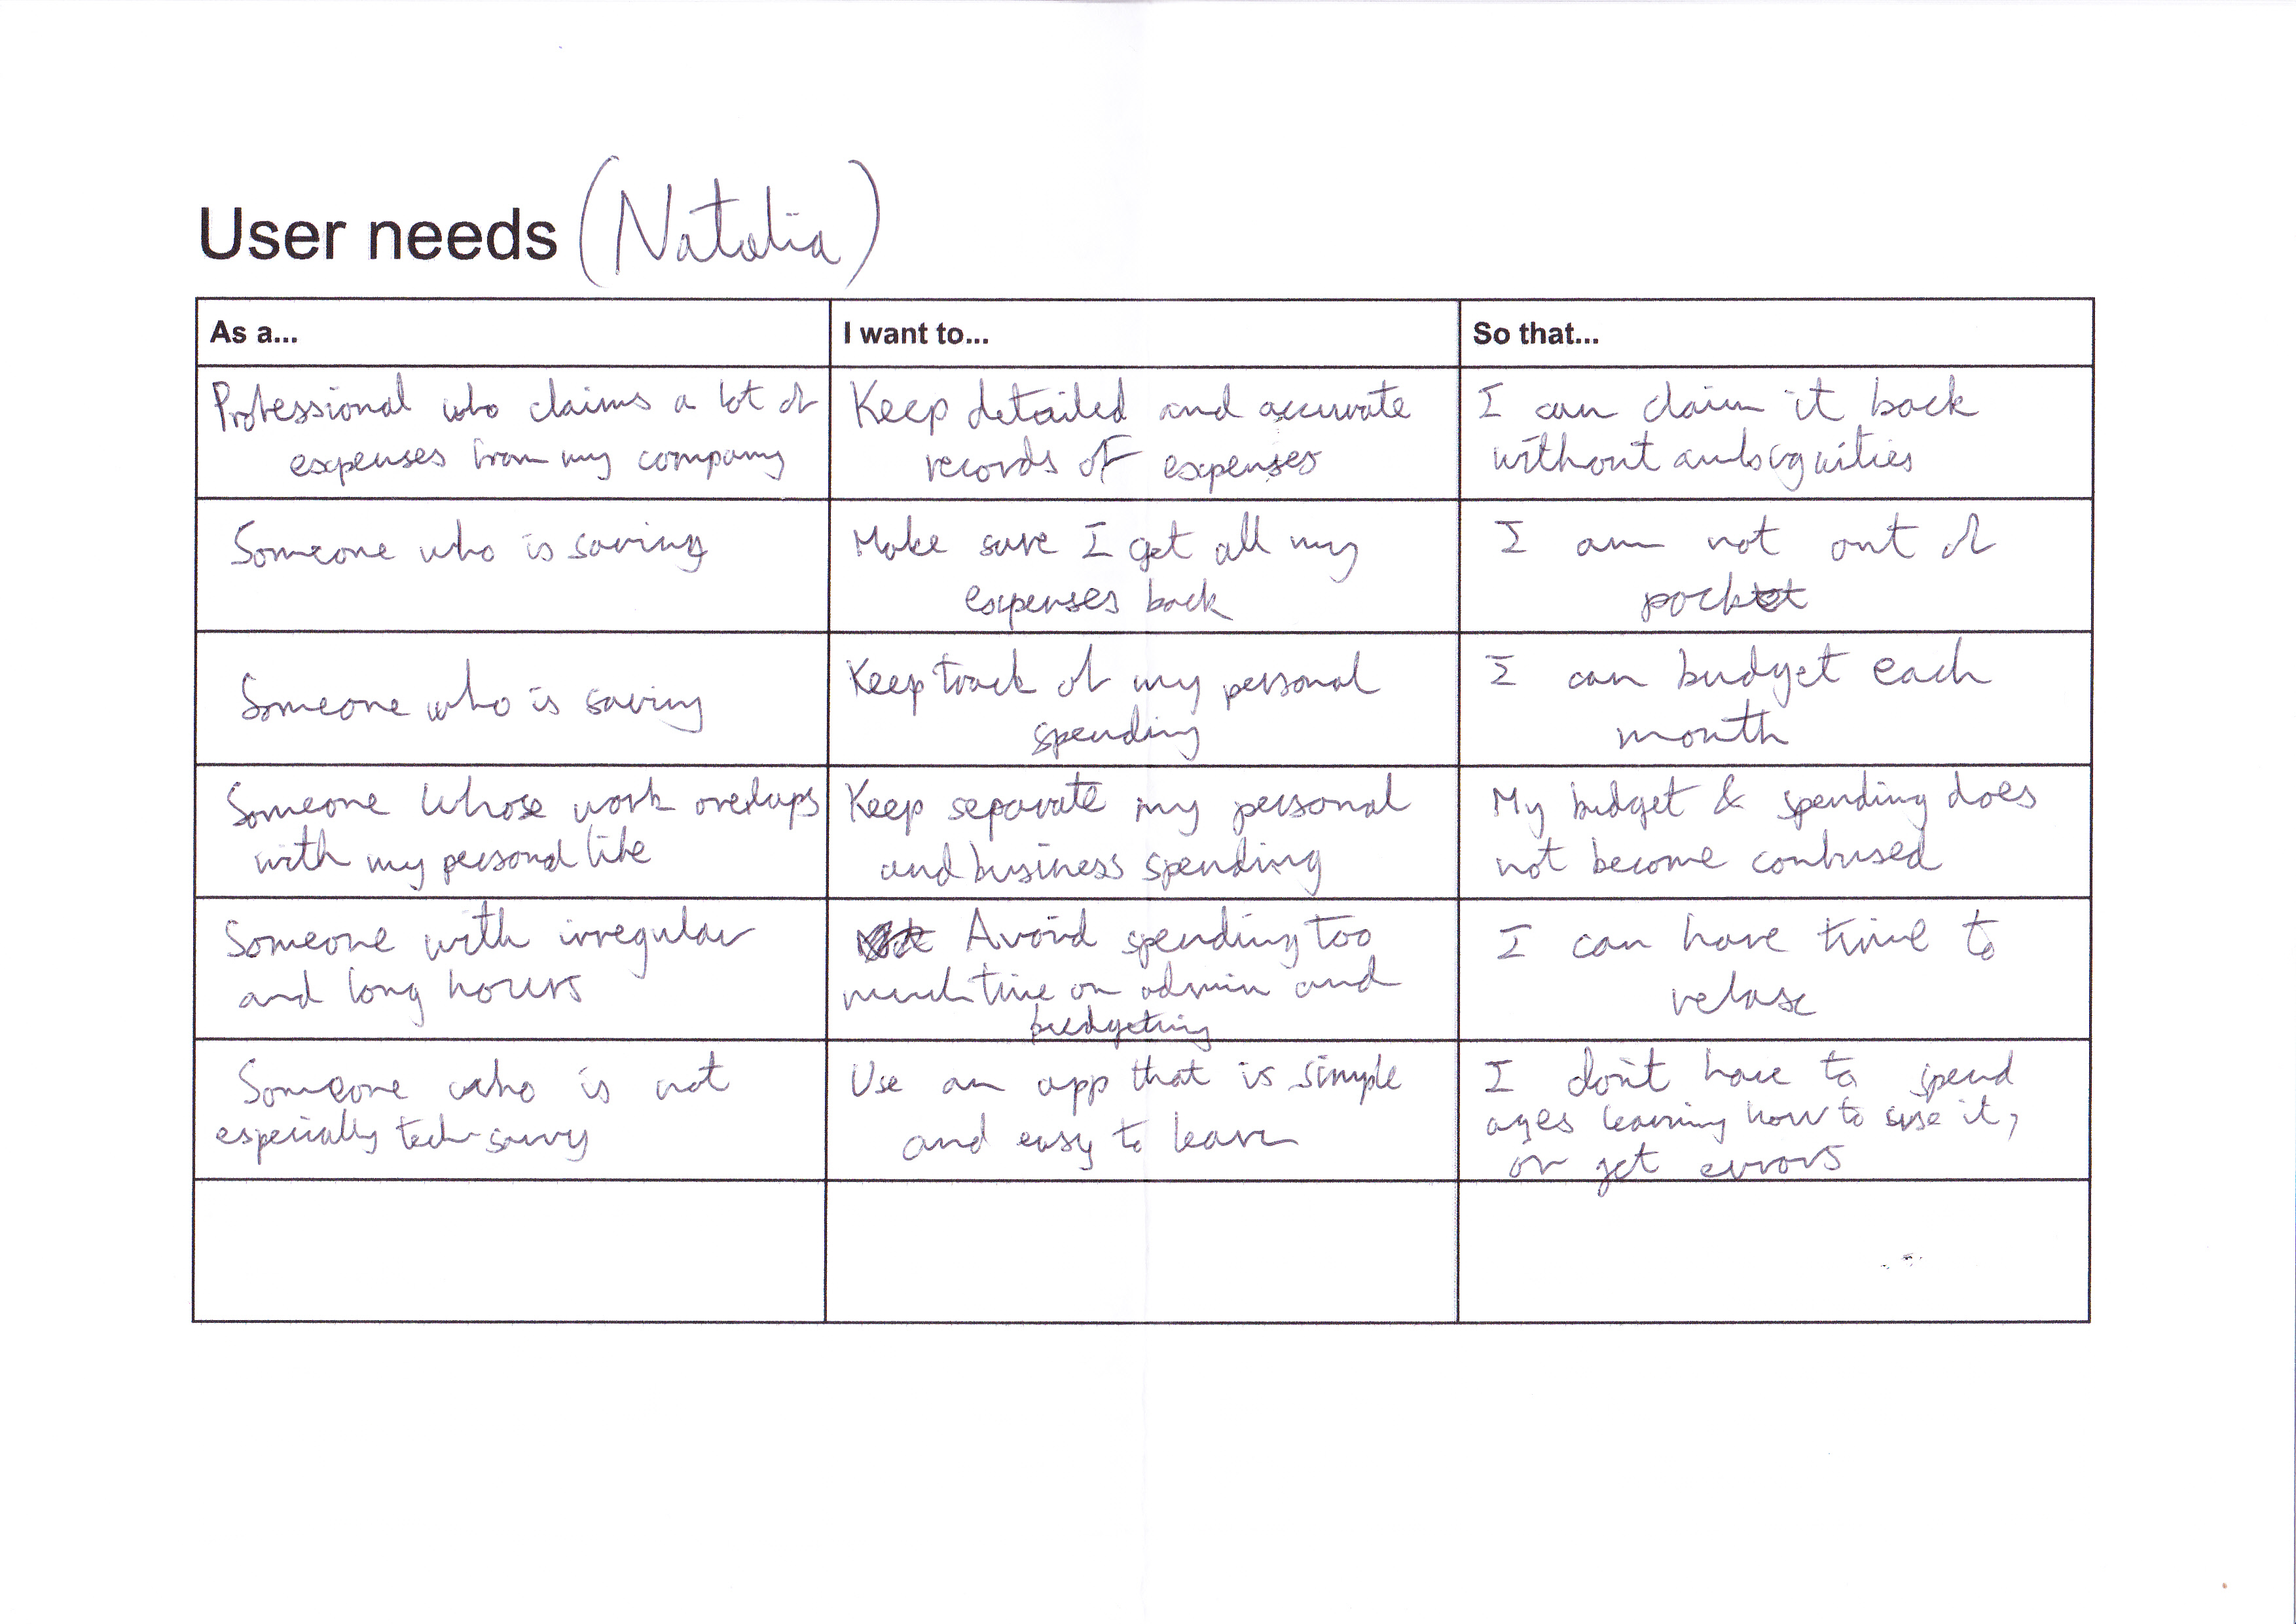 User needs (Natalia)
As a...
I want to...
So that...
Professional who claims a lot of
expenses from my company
Keep detailed and accurate
records of expenses
I can claim it back
without ambiguities
Someone who is saving
Make sure I get all my
expenses back
I am not out of
pocket
Someone who is saving
Keep track of my personal
spending
I can budget each
month
Someone whose work overlaps
with my personal life
Keep separate my personal
and business spending
My budget & spending does
not become confused
Someone with irregular
and long hours
Avoid spending too
much time on admin and
budgeting
I can have time to
relax
Someone who is not
especially tech-savvy
Use an app that is simple
and easy to learn
I don't have to spend
ages learning how to use it,
or get errors